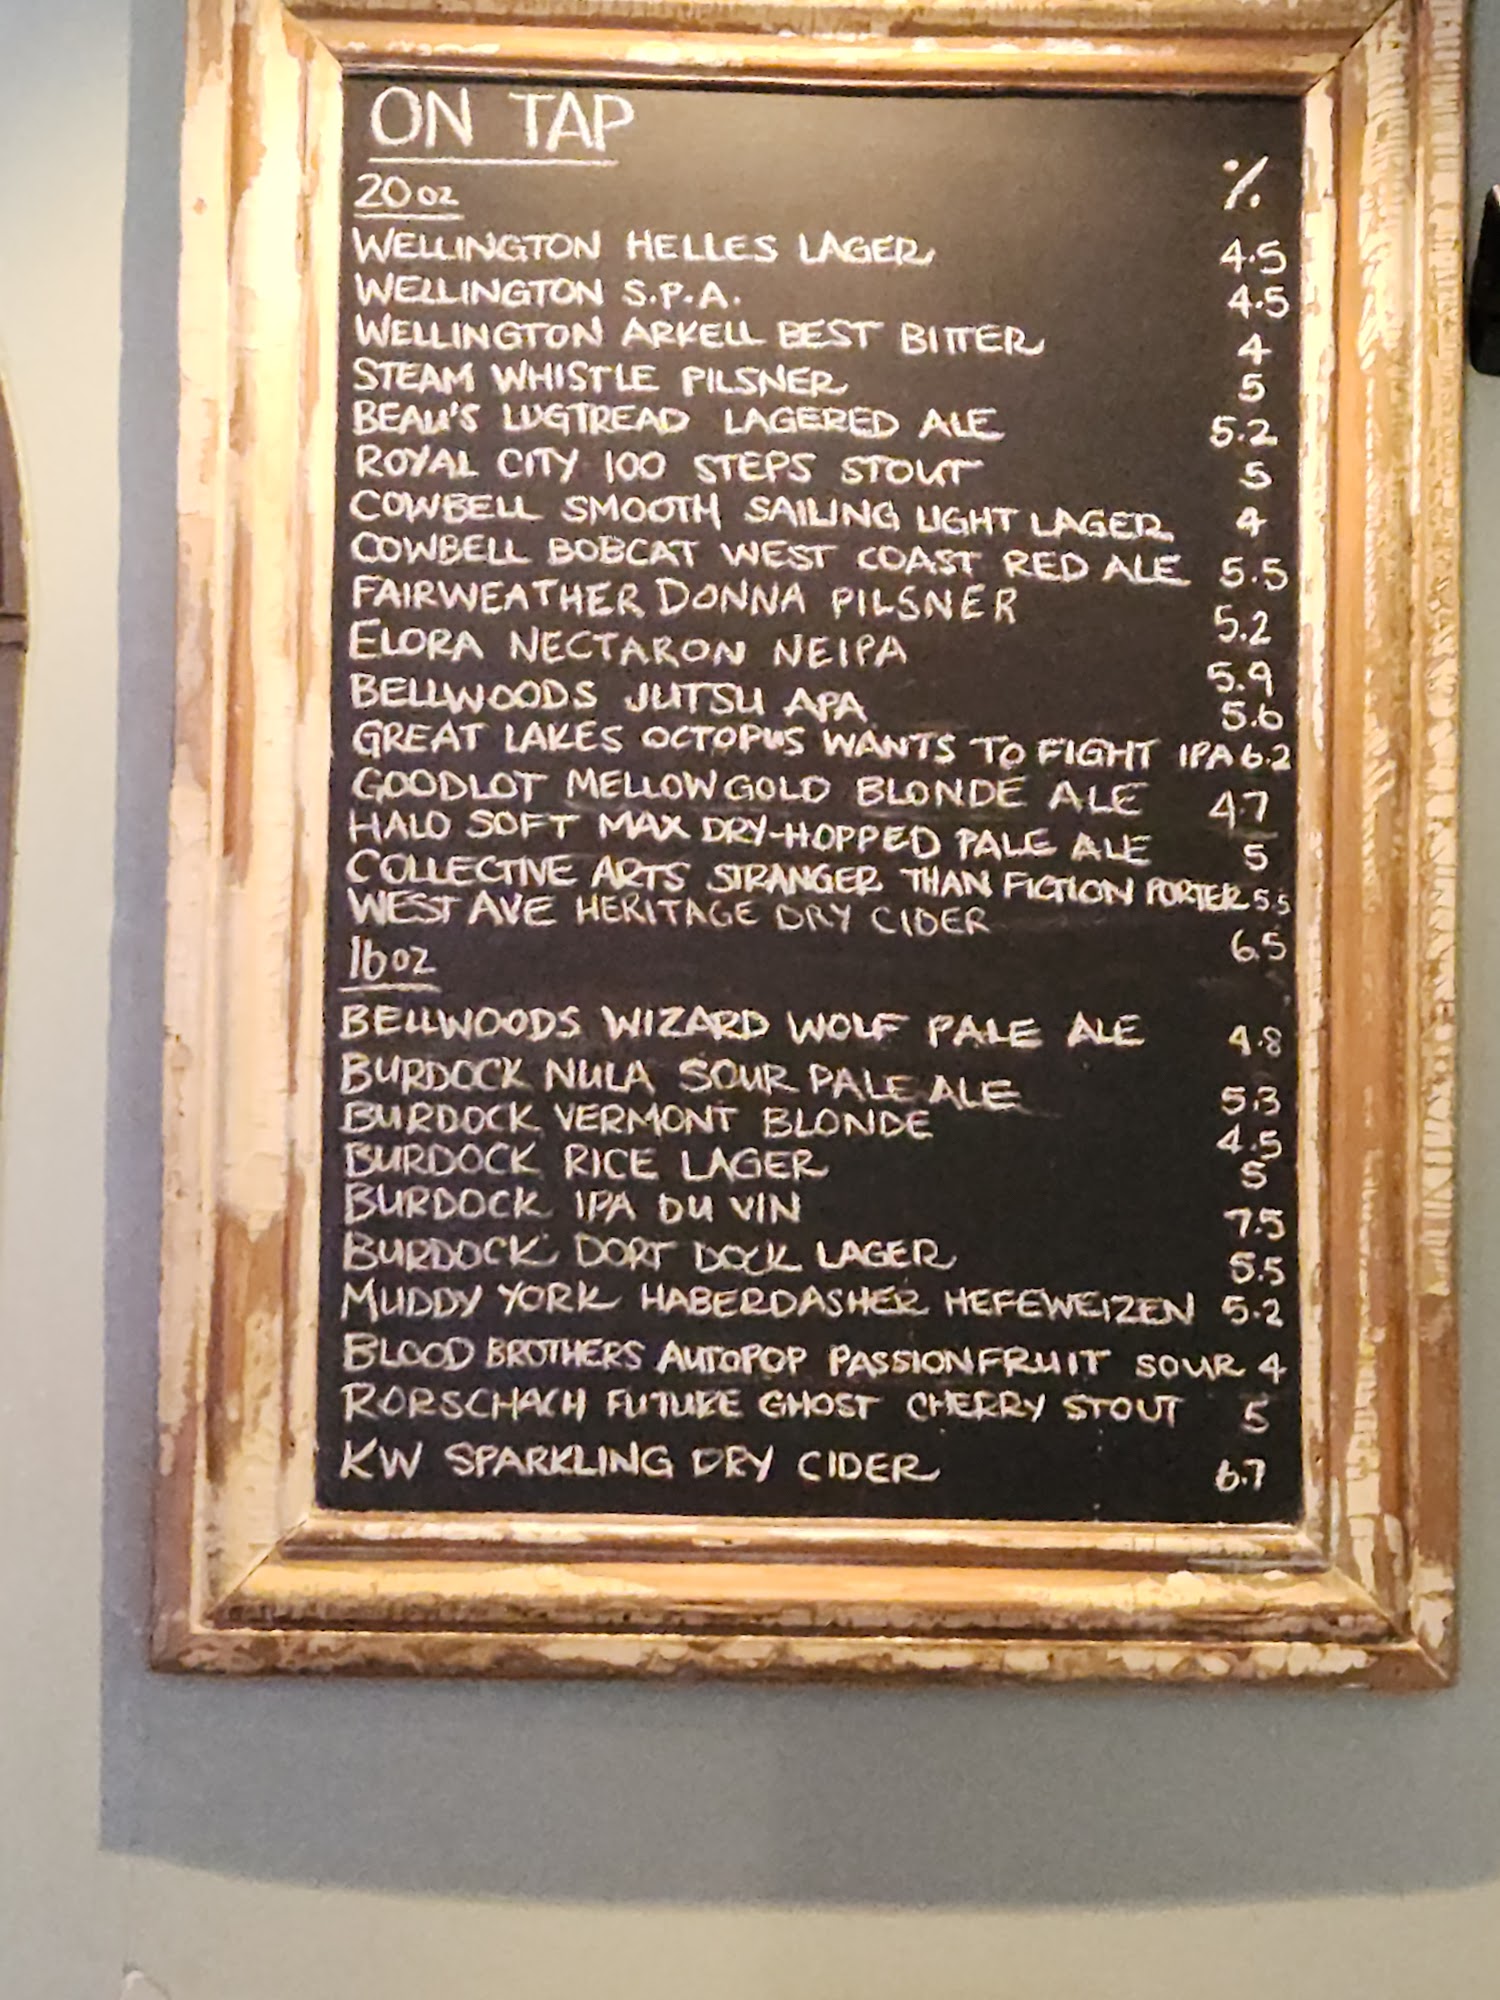 ON TAP
%
20oz
WELLINGTON HELLES LAGER 4.5
WELLINGTON S.P.A. 4.5
WELLINGTON ARKELL BEST BITTER 4
STEAM WHISTLE PILSNER 5
BEAU'S LUGTREAD LAGERED ALE 5.2
ROYAL CITY 100 STEPS STOUT 5
COWBELL SMOOTH SAILING LIGHT LAGER 4
COWBELL BOBCAT WEST COAST RED ALE 5.5
FAIRWEATHER DONNA PILSNER 5.2
ELORA NECTARON NEIPA 5.9
BELLWOODS JUTSU APA 5.6
GREAT LAKES OCTOPUS WANTS TO FIGHT IPA 6.2
GOODLOT MELLOW GOLD BLONDE ALE 4.7
HALO SOFT MAX DRY-HOPPED PALE ALE 5
COLLECTIVE ARTS STRANGER THAN FICTION PORTER 5.5
WEST AVE HERITAGE DRY CIDER 6.5
16oz
BELLWOODS WIZARD WOLF PALE ALE 4.8
BURDOCK NULA SOUR PALE ALE 5.3
BURDOCK VERMONT BLONDE 4.5
BURDOCK RICE LAGER 5
BURDOCK IPA DU VIN 7.5
BURDOCK DORT DOCK LAGER 5.5
MUDDY YORK HABERDASHER HEFEWEIZEN 5.2
BLOOD BROTHERS AUTOPOP PASSIONFRUIT SOUR 4
RORSCHACH FUTURE GHOST CHERRY STOUT 5
KW SPARKLING DRY CIDER 6.7